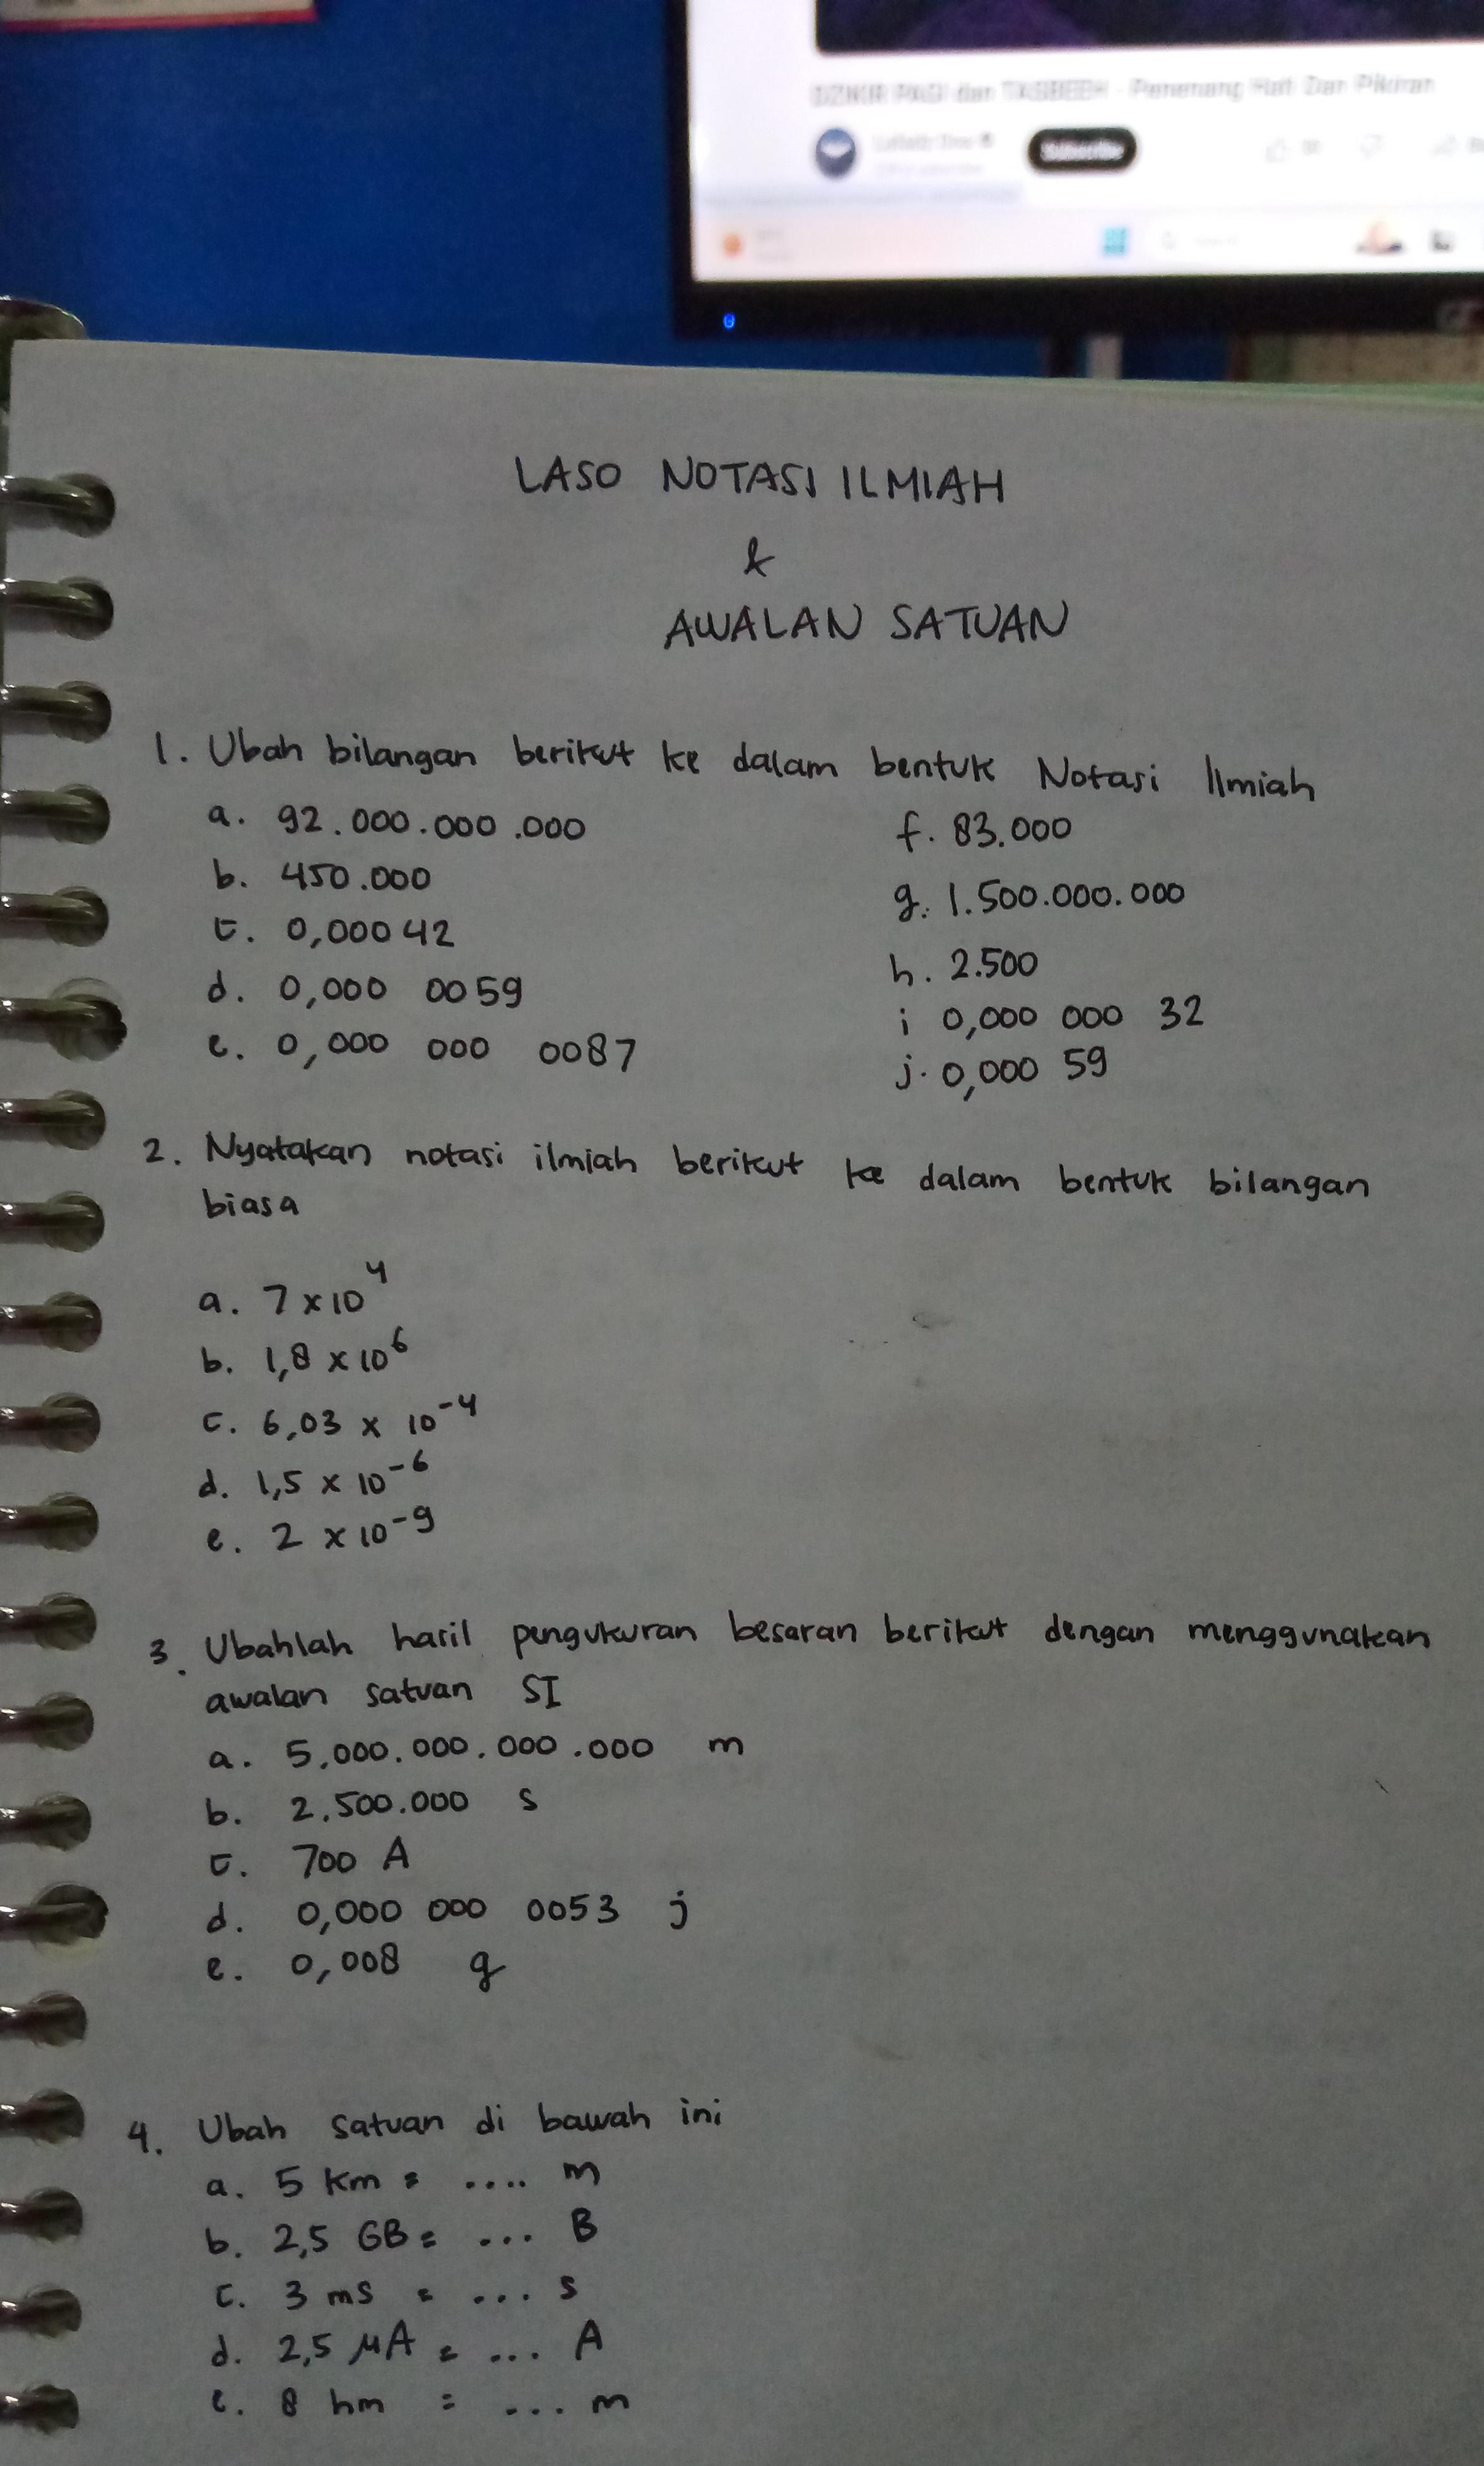 DZIKIR PAGI dan TASBEEH - Penenang Hati Dan Pikiran
Subscribe
LASO NOTASI ILMIAH
&
AWALAN SATUAN
1. Ubah bilangan berikut ke dalam bentuk Notasi Ilmiah
a. 92.000.000.000
b. 450.000
c. 0,00042
d. 0,000 0059
e. 0,000 000 0087
f. 83.000
g. 1.500.000.000
h. 2.500
i 0,000 000 32
j. 0,000 59
2. Nyatakan notasi ilmiah berikut ke dalam bentuk bilangan
biasa
a. 7 x 10⁴
b. 1,8 x 10⁶
c. 6,03 x 10⁻⁴
d. 1,5 x 10⁻⁶
e. 2 x 10⁻⁹
3. Ubahlah hasil pengukuran besaran berikut dengan menggunakan
awalan satuan SI
a. 5.000.000.000.000 m
b. 2.500.000 s
c. 700 A
d. 0,000 000 0053 j
e. 0,008 g
4. Ubah satuan di bawah ini
a. 5 km = .... m
b. 2,5 GB = ... B
c. 3 ms = ... s
d. 2,5 μA = ... A
e. 8 hm = ... m